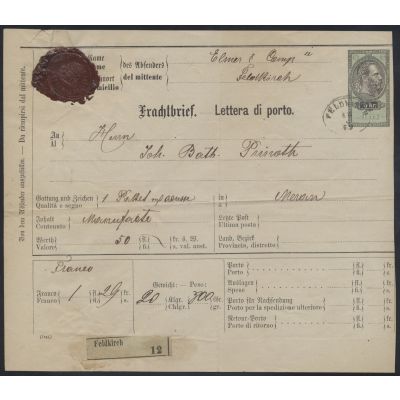 Name
Nome
Wohnort
Domicilio
des Absenders
del mittente
Elmer & Comp
Feldkirch
Von dem Absender auszufüllen. Da riempirsi dal mittente.
Frachtbrief. Lettera di porto.
FELDK
An
Al
Herrn
Joh. Bath. Prinoth
Gattung und Zeichen
Qualità e segno
1 Paket
in
a
Meran
Inhalt
Contenuto
Manufakte
Letzte Post
Ultima posta
Werth
Valore
50
(fl.)
(f.)
kr. ö. W.
s. val. aust.
Land, Bezirk
Provincia, distretto
Franco
Franco
Franco
1
(fl.)
(f.)
29
(kr.
(s.
Gewicht: Peso:
20
Klgr.
Chlgr.
300
Gr.
gr.
Porto
Porto
(fl.)
(f.)
(kr.
(s.
Auslagen
Spese
(fl.)
(f.)
(kr.
(s.
Porto für Nachsendung
Porto per la spedizione ulteriore
(fl.)
(f.)
(kr.
(s.
Retour-Porto
Porto di ritorno
(fl.)
(f.)
(kr.
(s.
Feldkirch
12